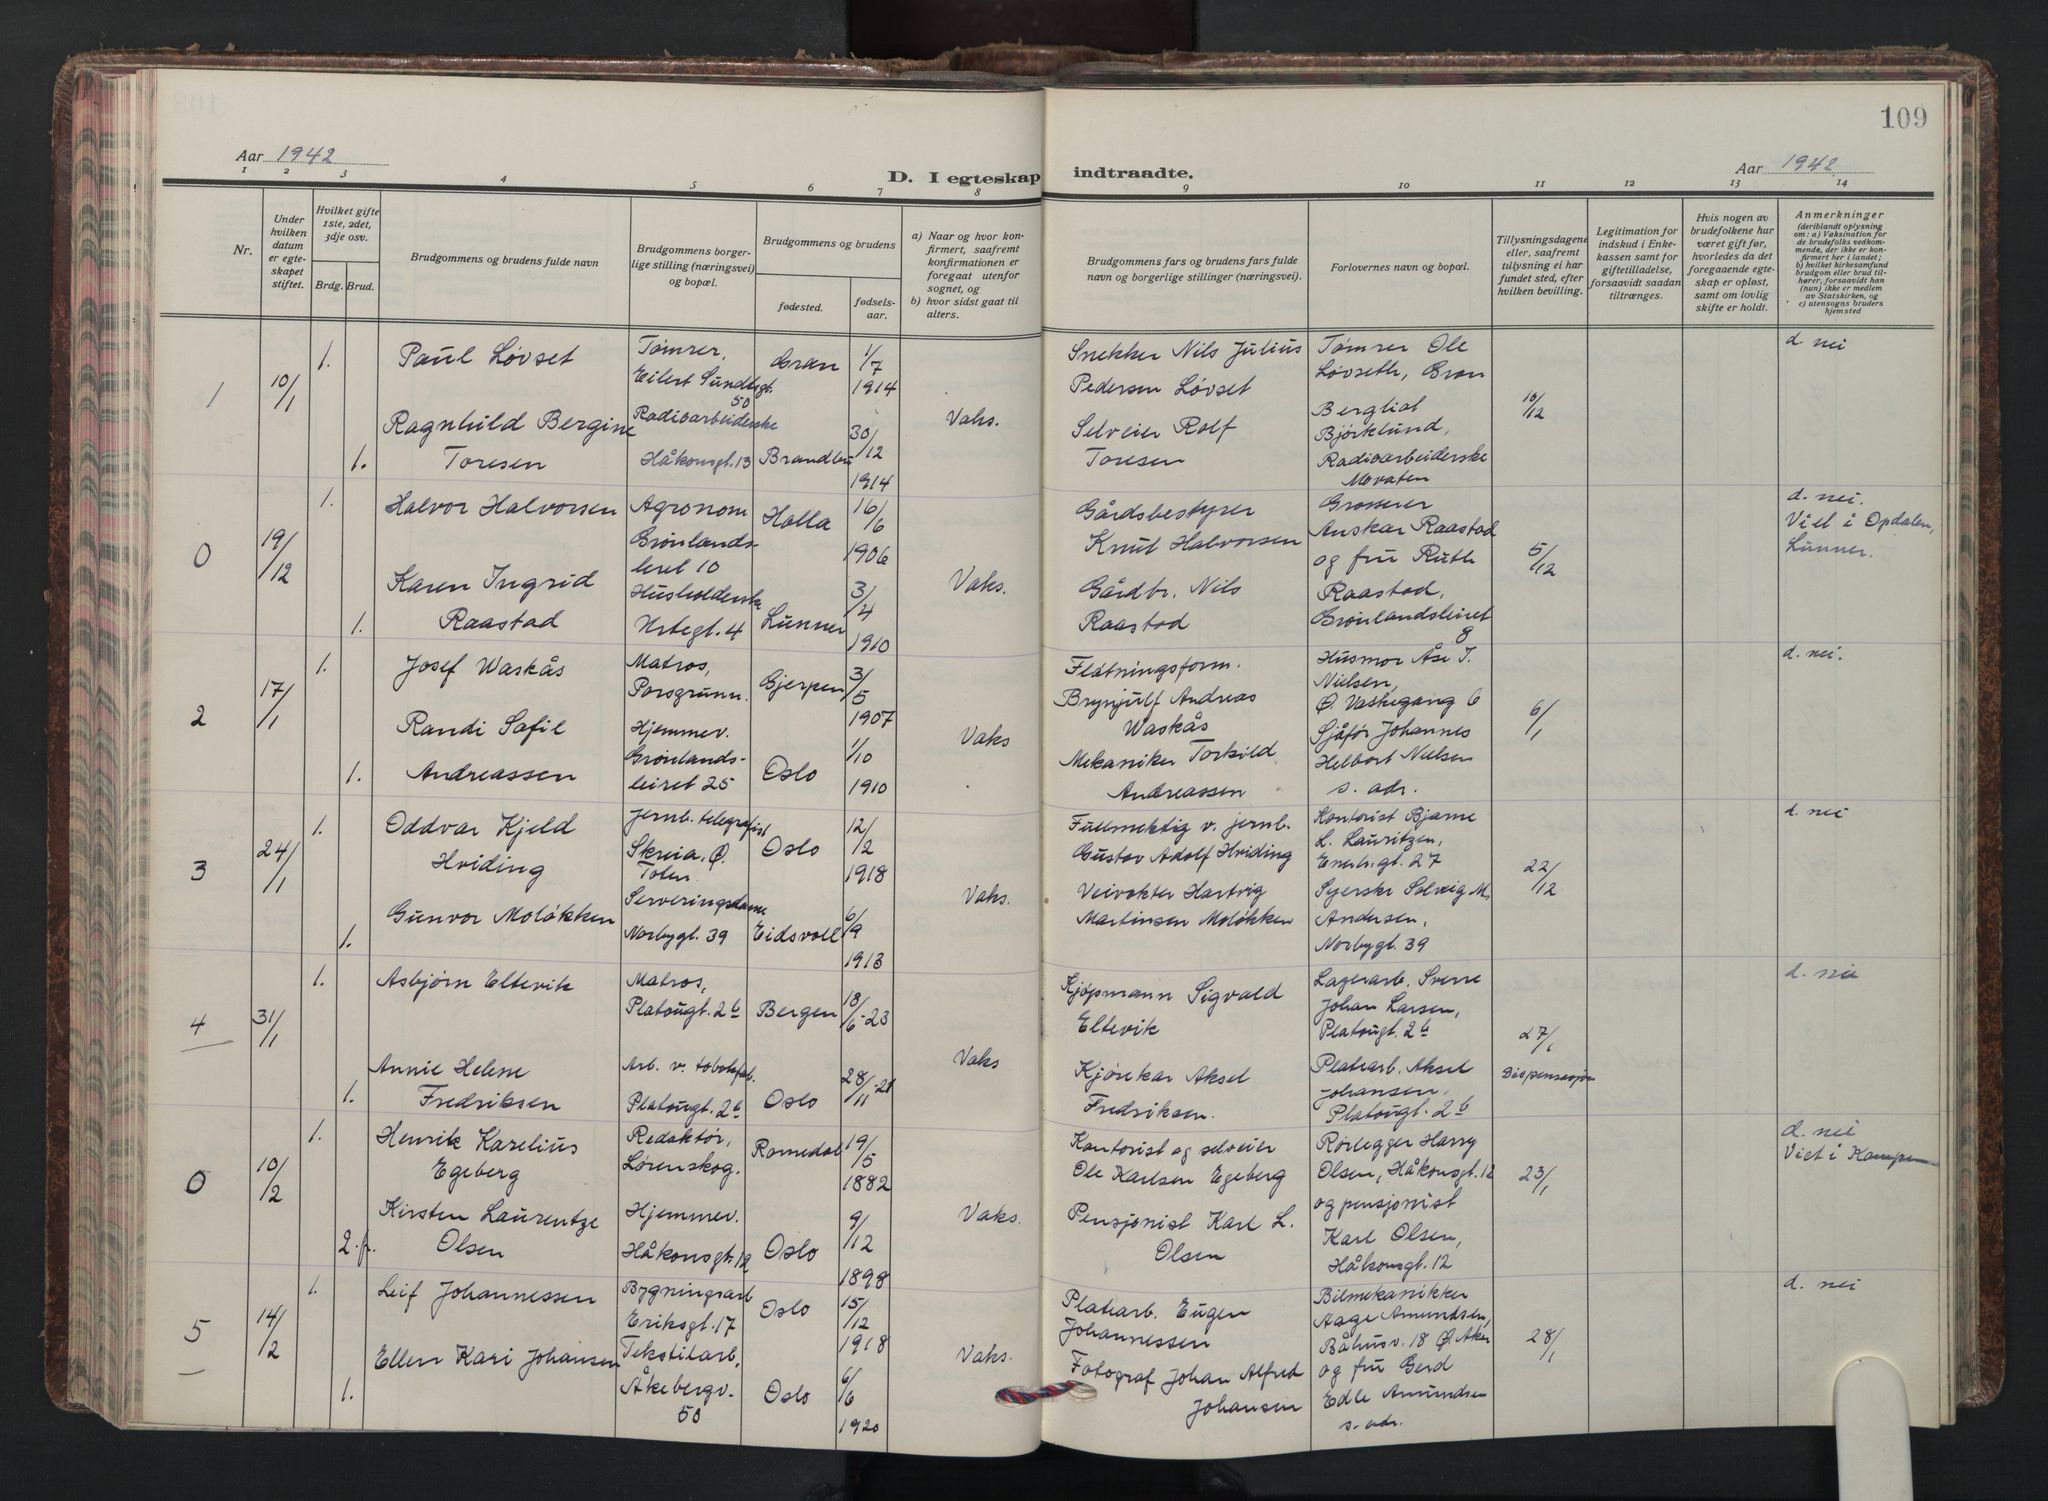 109
Aar 1942
D. I egteskap indtraadte.
Aar 1942
1 2 3 4 5 6 7 8 9 10 11 12 13 14
Nr.
Under hvilken datum er egteskapet stiftet.
Hvilket gifte 1ste, 2det, 3dje osv.
Brdg. Brud.
Brudgommens og brudens fulde navn
Brudgommens borgerlige stilling (næringsvei) og bopæl.
Brudgommens og brudens
fødested.
fødselsaar.
a) Naar og hvor konfirmert, saafremt konfirmationen er foregaat utenfor sognet, og
b) hvor sidst gaat til alters.
Brudgommens fars og brudens fars fulde navn og borgerlige stillinger (næringsvei).
Forlovernes navn og bopæl.
Tillysningsdagene eller, saafremt tillysning ei har fundet sted, efter hvilken bevilling.
Legitimation for indskud i Enkekassen samt for giftetilladelse, forsaavidt saadan tiltrænges.
Hvis nogen av brudefolkene har været gift før, hvorledes da det foregaaende egteskap er opløst, samt om lovlig skifte er holdt.
Anmerkninger
(deriblandt oplysning om: a) Vaksination for de brudefolks vedkommende, der ikke er konfirmert her i landet; b) hvilket kirkesamfund brudgom eller brud tilhører, forsaavidt han (hun) ikke er medlem av Statskirken, og c) utensogns bruders hjemsted
1
10/1
1.
Paul Løvset
Tømrer,
Eilert Sundtsgt.
50
Gran
1/7
1914
1.
Ragnhild Bergine
Toresen
Radioarbeiderske
Håkonsgt. 13
Brandbu
30/12
1914
Vaks.
Snekker Nils Julius
Pedersen Løvset
Selveier Rolf
Toresen
Tømrer Ole
Løvseth, Gran
Bergliot
Bjørklund,
Radioarbeiderske
10/12
d. nei
0
19/12
1.
Halvor Halvorsen
Agronom
Grønlands-
leret 10
Holla
16/6
1906
1.
Karen Ingrid
Raastad
Husholderske
Urtegt. 4
Lunner
3/4
1910
Vaks.
Gårdsbestyrer
Knut Halvorsen
Gårdbr. Nils
Raastad
Grosserer
Anskar Raastad
og fru Ruth
Raastad,
Grønlandsleiret
8
5/12
d. nei.
Viet i Opdalen,
Lunner.
2
17/1
1.
Josef Waskås
Matros,
Porsgrunn.
Gjerpen
3/5
1907
1.
Randi Sofil
Andreassen
Hjemmev.
Grønlands-
leiret 25
Oslo
1/10
1910
Vaks
Fløtningsform.
Brynjulf Andreas
Waskås
Mekaniker Torkild
Andreassen
Husmor Åse J.
Nielsen,
Ø. Vaskegang 6
Sjåfør Johannes
Helbort Nielsen
s. adr.
6/1
d. nei.
3
24/1
1.
Oddvar Kjeld
Hviding
Jernb. telegrafist
Skreia, Ø.
Toten
Oslo
12/2
1918
1.
Gunvor Moløkken
Serveringsdame
Norbygt. 39
Eidsvoll
6/9
1913
Vaks.
Fullmektig v. jernb.
Gustav Adolf Hviding
Veivokter Hartvig
Martinsen Moløkken
Kontorist Bjarne
L. Lauritzen,
27
Syerske Solveig M.
Andersen,
Norbygt. 39
22/12
d. nei
4
31/1
1.
Asbjørn Eltevik
Matros,
Platougt. 2b
Bergen
18/6-23
1.
Annie Helene
Fredriksen
Arb. v. tobaksfab.
Platougt. 2b
Oslo
28/11-21
Vaks
Kjøpmann Sigvald
Eltevik
Kjørekar Aksel
Fredriksen.
Lagerarb. Sverre
Johan Larsen,
Platougt. 2b
Platearb. Aksel
Johansen,
Platougt. 2b
27/1
Dispensasjon
d. nei
0
10/2
1.
Henrik Karelius
Egeberg
Redaktør,
Lørenskog.
Romedal
19/5
1882
2. fr.
Kirsten Laurentze
Olsen
Hjemmev.
Håkonsgt. 12
Oslo
9/12
1898
Vaks.
Kontorist og selveier
Ole Karlsen Egeberg
Pensjonist Karl L.
Olsen
Rørlegger Harry
Olsen, Håkonsgt. 12
og pensjonist
Karl Olsen,
Håkonsgt. 12
23/1
d. nei
Viet i Kampen
5
14/2
1.
Leif Johannessen
Bygningsarb
Eriksgt. 17
Oslo
15/12
1918
1.
Ellen Kari Johansen
Tekstilarb,
Åkebergv.
50
Oslo
6/6
1920
Vaks.
Platearb. Eugen
Johannessen
Fotograf Johan Alfred
Johansen
Bilmekanikker
Aage Amundsen,
Båhusv. 18 Ø. Aker
og fru Gerd
Edle Amundsen
s. adr.
28/1
d. nei